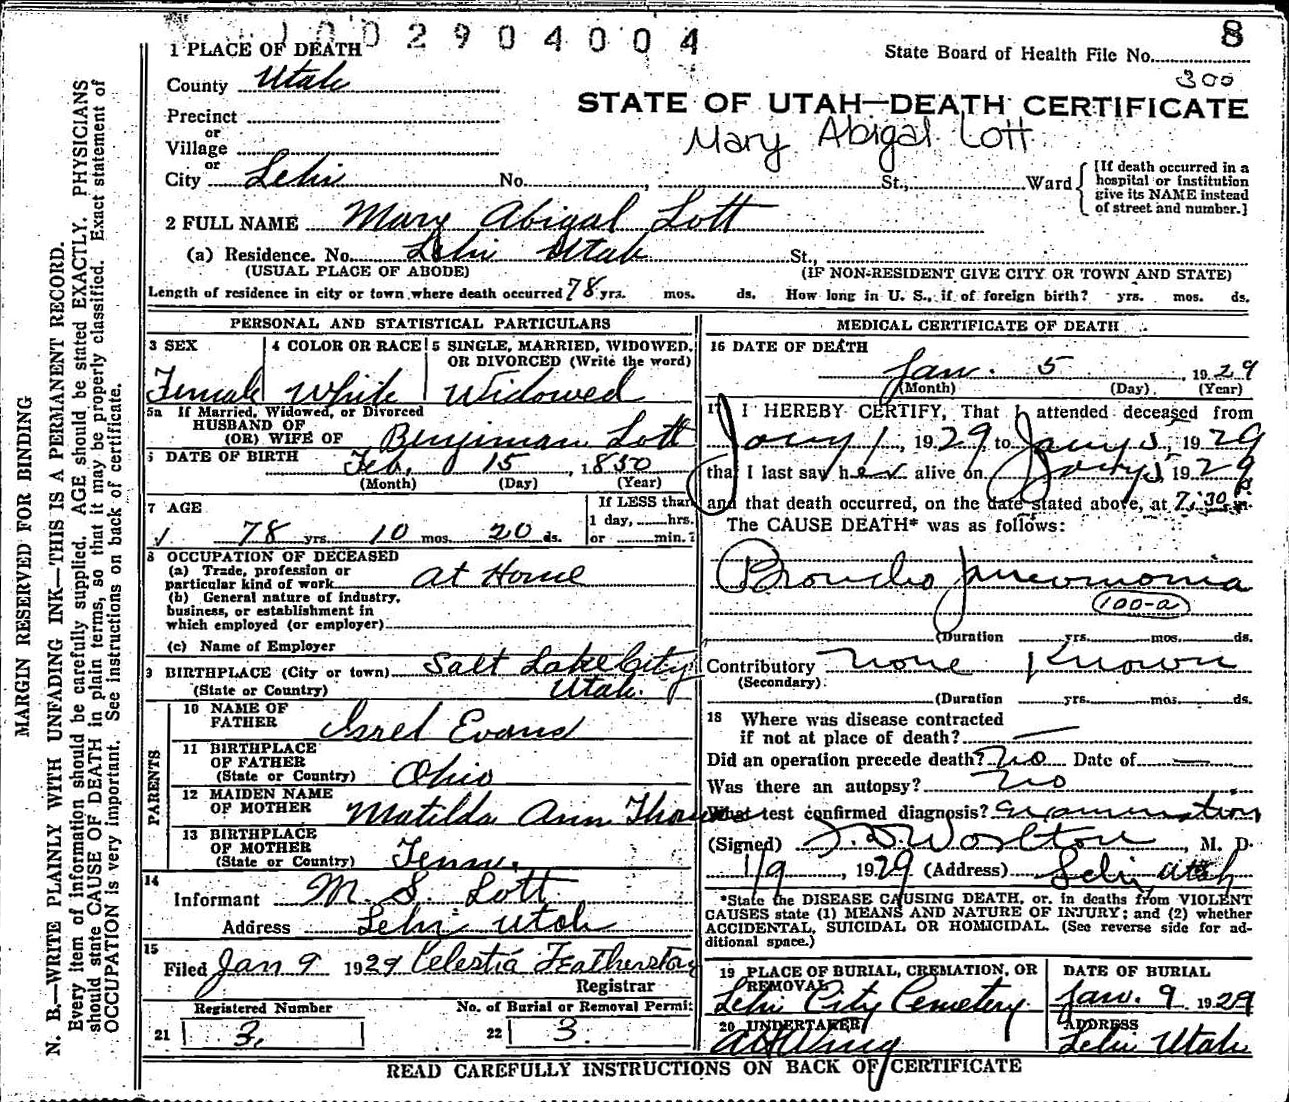 1002904004
8
1 PLACE OF DEATH
State Board of Health File No.
300
County Utah
STATE OF UTAH—DEATH CERTIFICATE
Precinct
Mary Abigal Lott
or
Village
or
City Lehi No. , St., Ward
[If death occurred in a
hospital or institution
give its NAME instead
of street and number.]
2 FULL NAME Mary Abigal Lott
(a) Residence. No. Lehi Utah St.,
(USUAL PLACE OF ABODE) (IF NON-RESIDENT GIVE CITY OR TOWN AND STATE)
Length of residence in city or town where death occurred 78 yrs. mos. ds. How long in U. S., if of foreign birth? yrs. mos. ds.
PERSONAL AND STATISTICAL PARTICULARS
3 SEX
Female
4 COLOR OR RACE
White
5 SINGLE, MARRIED, WIDOWED,
OR DIVORCED (Write the word)
Widowed
5a If Married, Widowed, or Divorced
HUSBAND OF
(OR) WIFE OF Benjiman Lott
6 DATE OF BIRTH Feb, 15, 1850
(Month) (Day) (Year)
7 AGE
78 yrs. 10 mos. 20 ds.
If LESS than
1 day, hrs.
or min.?
8 OCCUPATION OF DECEASED
(a) Trade, profession or
particular kind of work at Home
(b) General nature of industry,
business, or establishment in
which employed (or employer)
(c) Name of Employer
9 BIRTHPLACE (City or town) Salt Lake City
(State or Country) Utah.
PARENTS
10 NAME OF
FATHER Isrel Evans
11 BIRTHPLACE
OF FATHER
(State or Country) Ohio
12 MAIDEN NAME
OF MOTHER Matilda Ann Thomas
13 BIRTHPLACE
OF MOTHER
(State or Country) Tenn.
14
Informant M. S. Lott
Address Lehi Utah
15
Filed Jan 9 1929 Celestia Featherstone
Registrar
Registered Number No. of Burial or Removal Permit
21 3. 22 3.
MEDICAL CERTIFICATE OF DEATH
16 DATE OF DEATH
Jan. 5 1929
(Month) (Day) (Year)
17 I HEREBY CERTIFY, That I attended deceased from
Jany 1, 1929 to Jany 5, 1929
that I last saw her alive on Jany 5 1929
and that death occurred, on the date stated above, at 7:30 P.m.
The CAUSE DEATH* was as follows:
Broncho pneumonia
100-a
(Duration yrs. mos. ds.
Contributory None Known
(Secondary)
(Duration yrs. mos. ds.
18 Where was disease contracted
if not at place of death? —
Did an operation precede death? no Date of —
Was there an autopsy? no
What test confirmed diagnosis? examination
(Signed) , M. D.
1/9, 1929 (Address) Lehi, Utah
*State the DISEASE CAUSING DEATH, or, in deaths from VIOLENT
CAUSES state (1) MEANS AND NATURE OF INJURY; and (2) whether
ACCIDENTAL, SUICIDAL OR HOMICIDAL. (See reverse side for ad-
ditional space.)
19 PLACE OF BURIAL, CREMATION, OR
REMOVAL
Lehi City Cemetery
DATE OF BURIAL
Jan. 9 1929
20 UNDERTAKER
ADDRESS
Lehi Utah
READ CAREFULLY INSTRUCTIONS ON BACK OF CERTIFICATE
MARGIN RESERVED FOR BINDING
N. B.—WRITE PLAINLY WITH UNFADING INK—THIS IS A PERMANENT RECORD.
Every item of information should be carefully supplied. AGE should be stated EXACTLY. PHYSICIANS
should state CAUSE OF DEATH in plain terms, so that it may be properly classified. Exact statement of
OCCUPATION is very important. See instructions on back of certificate.